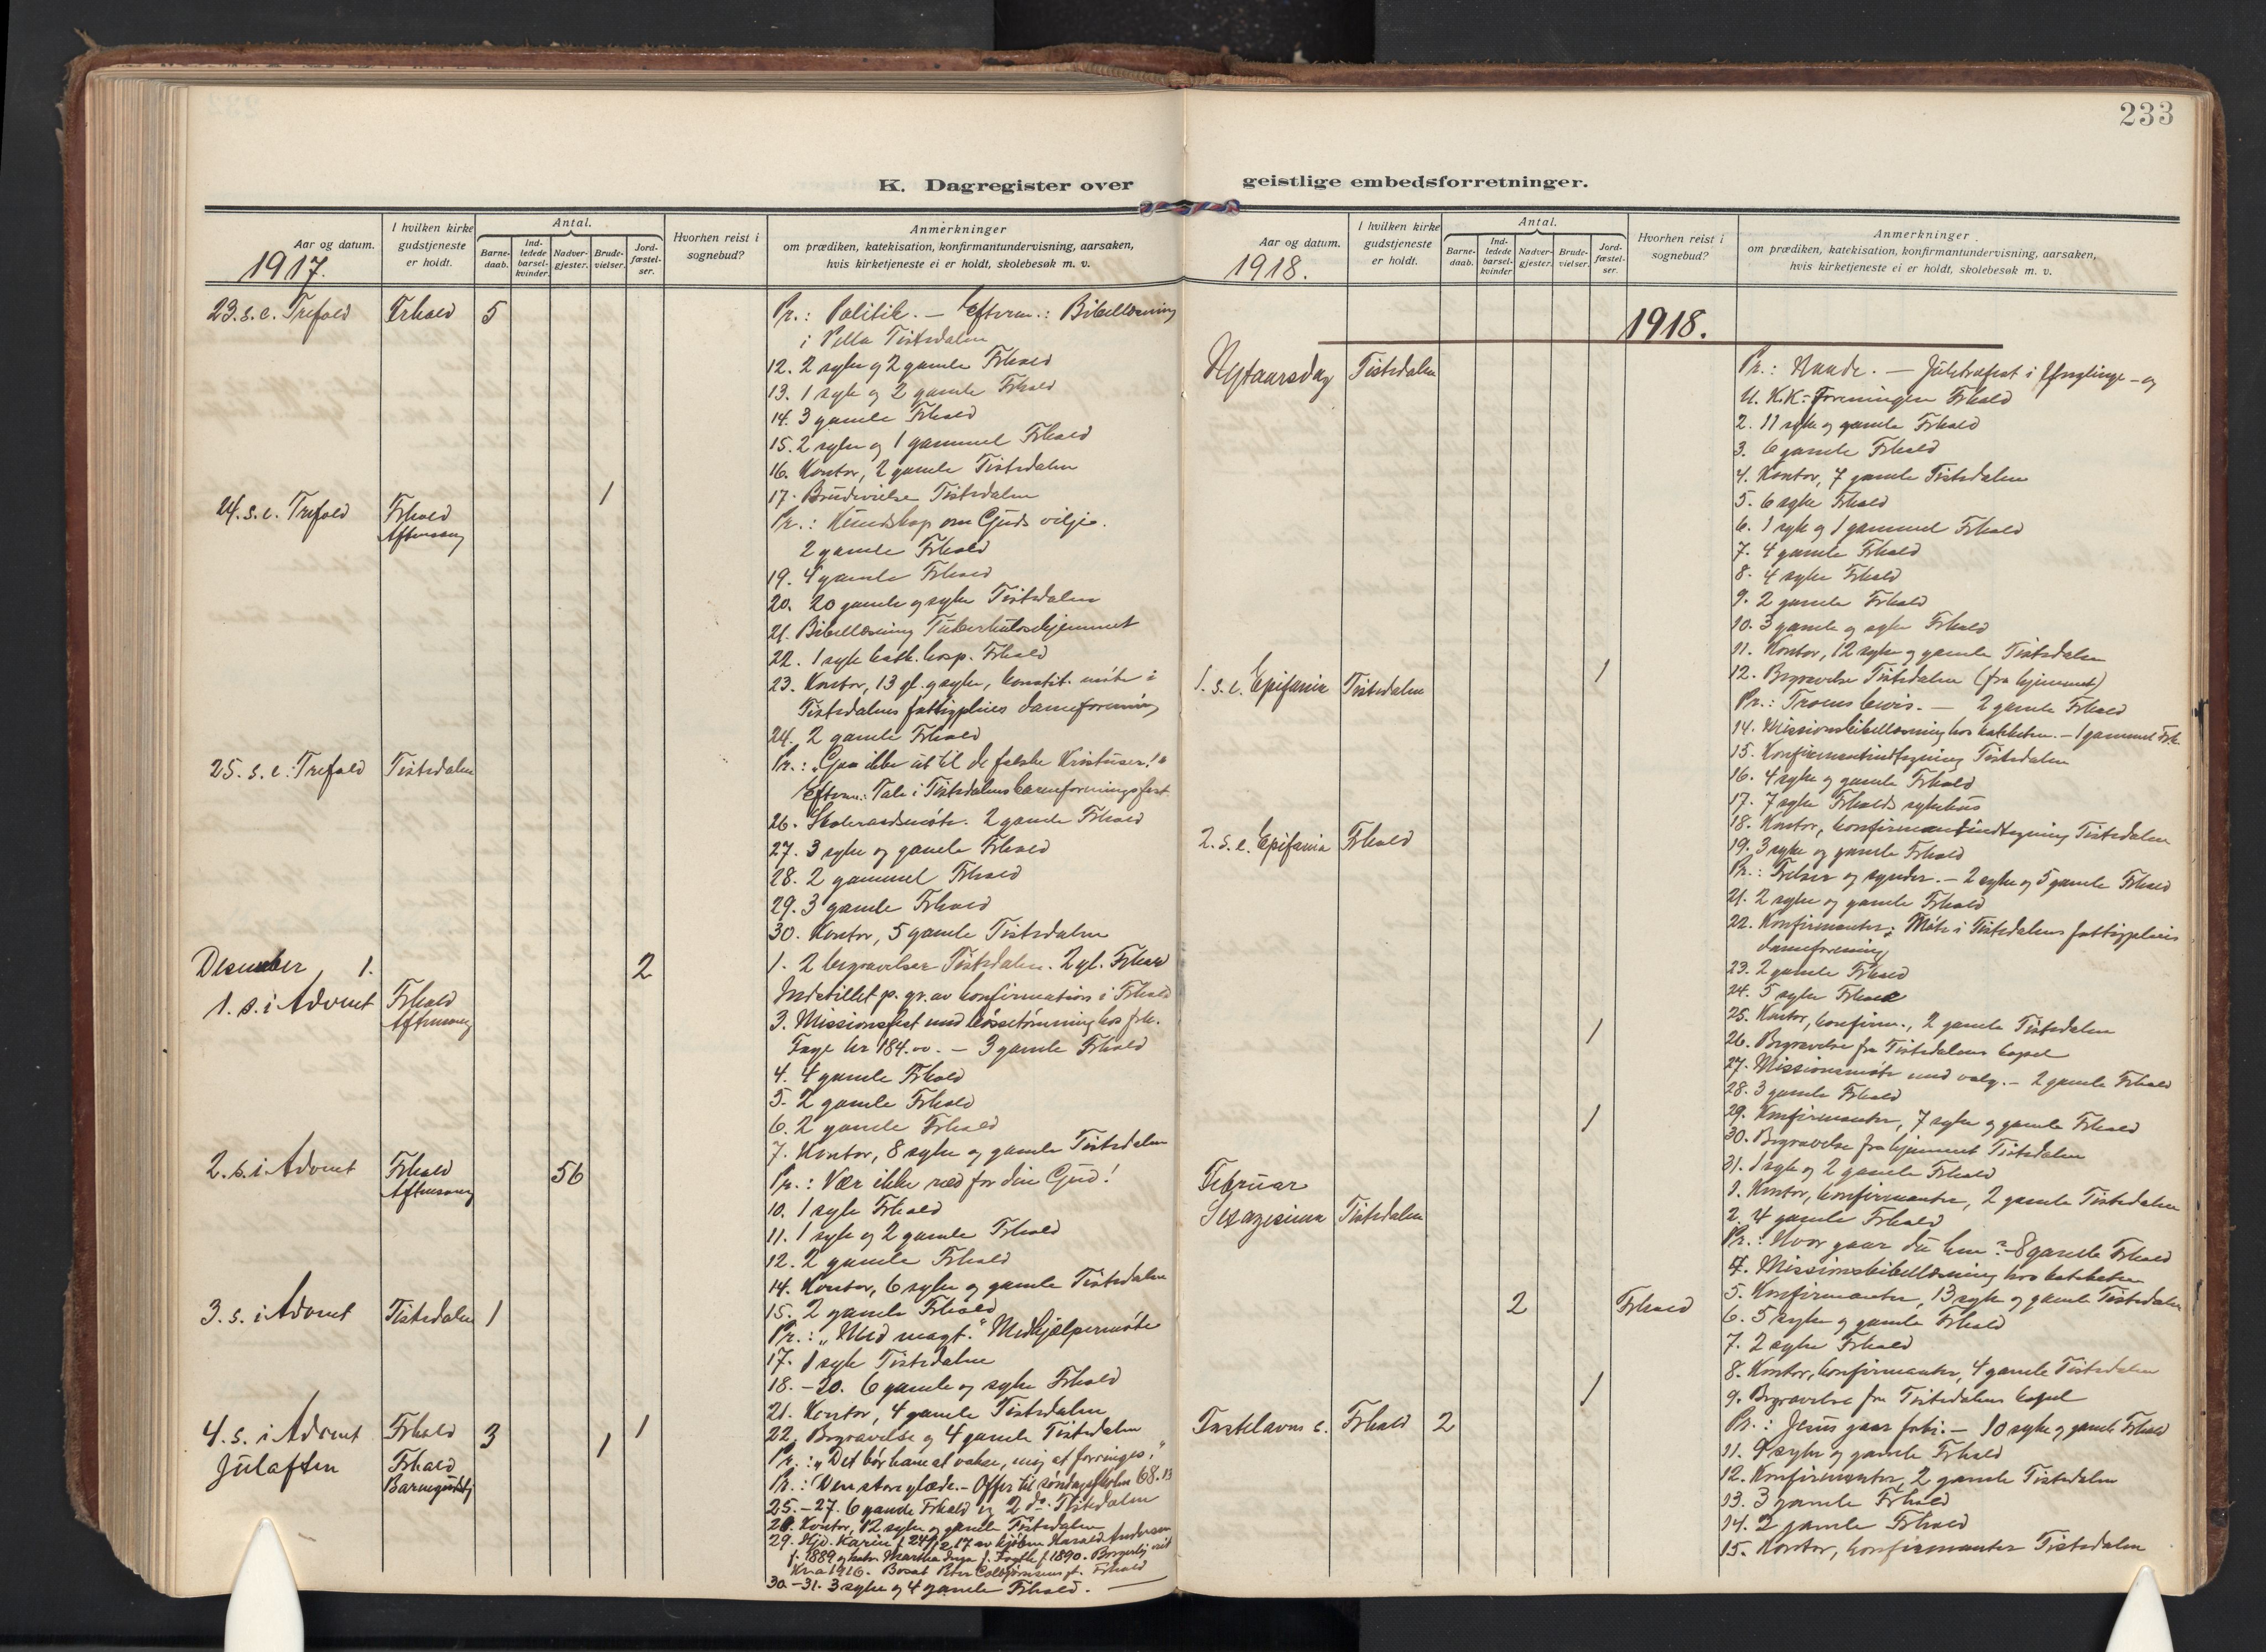 233
K. Dagregister over
Aar og datum.
I hvilken kirke
gudstjeneste
er holdt.
Antal.
Barne-
daab.
Ind-
ledede
barsel-
kvinder
Nadver-
gjester.
Brude-
vielser.
Jord-
fæstel-
ser.
Hvorhen reist i
sognebud?
Anmerkninger
om prædiken, katekisation, konfirmantundervisning, aarsaken,
hvis kirketjeneste ei er holdt, skolebesøk m. v.
1917.
23. s. e. Trefold Frhald 5 Pr.: Politik. — Efterm.: Bibellæsning
i Pella Tistedalen
12. 2 syke og 2 gamle Frhald
13. 1 syk og 2 gamle Frhald
14. 3 gamle Frhald
15. 2 syke og 1 gammel Frhald
16. Kontor, 2 gamle Tistedalen
1 17. Brudevielse Tistedalen
24. s. e. Trefold Frhald Pr.: Kundskap om Guds vilje.
Aftensang
2 gamle Frhald
19. 4 gamle Frhald
20. 20 gamle og syke Tistedalen
21. Bibellæsning Tuberkulosehjemmet
22. 1 syk kath. hosp. Frhald
23. Kontor, 13 gl. og syke, konstit. møte i
Tistedalens fattigpleies dameforening
24. 2 gamle Frhald
25. s. e. Trefold Tistedalen Pr.: "Gaa ikke ut til de falske Kristuser!"
Efterm.: Tale i Tistedalens barneforeningsfest.
26. 2 gamle Frhald
27. 3 syke og gamle Frhald
28. 2 gammel Frhald
29. 3 gamle Frhald
30. Kontor, 5 gamle Tistedalen
Desember 1. 2 1. 2 begravelser Tistedalen. 2 gl. Frhald
1. s. i Advent Frhald Indstillet p. gr. av konfirmation i Frhald
Aftensang 3. Missionsfest med bøssetømning hos frk.
Faye kr 184.00. — 3 gamle Frhald
4. 4 gamle Frhald
5. 2 gamle Frhald
6. 2 gamle Frhald
7. Kontor, 8 syke og gamle Tistedalen
2. s. i Advent Frhald 56 Pr.: Vær ikke ræd for din Gud!
Aftensang
10. 1 syk Frhald
11. 1 syk og 2 gamle Frhald
12. 2 gamle Frhald
14. Kontor, 6 syke og gamle Tistedalen
15. 2 gamle Frhald
3. s. i Advent Tistedalen 1 Pr.: "Med magt." Medhjælpermøte
17. 1 syk Tistedalen
18.-20. 6 gamle og syke Frhald
21. Kontor, 4 gamle Tistedalen
1 22. Begravelse og 4 gamle Tistedalen
4. s. i Advent Frhald 3 1 Pr.: "Det bør ham at vokse, mig at forringes."
Julaften Frhald Pr.: Den store glæde. — Offer til søndagsskolen 68.13
Barnegudstj
25.-27. 6 gamle Frhald og 2 do. Tistedalen
28. Kontor, 12 syke og gamle Tistedalen
29. Hjd. Karin f. 24/12 17 av kjøbm Harald Andersen
f. 1889 og hstr. Martha Inga f. 1890. Borgerlig viet
Kr.a 1916. Bosat Frhald
30.-31. 3 syke og 4 gamle Frhald.
geistlige embedsforretninger.
Aar og datum.
I hvilken kirke
gudstjeneste
er holdt.
Antal.
Barne-
daab.
Ind-
ledede
barsel-
kvinder
Nadver-
gjester.
Brude-
vielser.
Jord-
fæstel-
ser.
Hvorhen reist i
sognebud?
Anmerkninger
om prædiken, katekisation, konfirmantundervisning, aarsaken,
hvis kirketjeneste ei er holdt, skolebesøk m. v.
1918.
1918.
Nytaarsdag Tistedalen Pr.: Naade. — Juletræfest i Ynglinge- og
U. K.K.-Foreningen Frhald
2. 11 syke og gamle Frhald
3. 6 gamle Frhald
4. Kontor, 7 gamle Tistedalen
5. 6 syke Frhald
6. 1 syk og 1 gammel Frhald
7. 4 gamle Frhald
8. 4 syke Frhald
9. 2 gamle Frhald
10. 3 gamle og syke Frhald
11. Kontor, 12 syke og gamle Tistedalen
1 12. Begravelse Tistedalen (fra hjemmet)
1. s. e. Epifania Tistedalen Pr.: Troens bevis. — 2 gamle Frhald
14. Missionsbibellæsning hos kateketen. — 1 gammel Frh.
15. Konfirmantindtegning Tistedalen
16. 4 syke og gamle Frhald
17. 7 syke Frhalds sykehus
18. Kontor, konfirmantindtegning Tistedalen
19. 3 syke og gamle Frhald
2. s. e. Epifania Frhald Pr.: Frelser og synder. — 2 syke og 5 gamle Frhald
21. 2 syke og gamle Frhald
22. Konfirmanter; Møte i Tistedalens fattigpleies
dameforening
23. 2 gamle Frhald
24. 5 syke Frhald
25. Kontor, konfirm., 2 gamle Tistedalen
1 26. Begravelse fra Tistedalens kapel
27. Missionsmøte med valg. — 2 gamle Frhald
28. 3 gamle Frhald
29. Konfirmanter, 7 syke og gamle Frhald
1 30. Begravelse fra hjemmet Tistedalen
31. 1 syk og 2 gamle Frhald
Februar 1. Kontor, konfirmanter, 2 gamle Tistedalen
2. 4 gamle Frhald
Sexagesima Tistedalen Pr.: Hvor gaar du hen? — 8 gamle Frhald
4. Missionsbibellæsning hos kateketen
5. Konfirmanter, 13 syke og gamle Tistedalen
2 Frhald 6. 5 syke og gamle Frhald
7. 2 syke Frhald
8. Kontor, konfirmanter, 4 gamle Tistedalen
1 9. Begravelse fra Tistedalens kapel
Fastelavns s. Frhald 2 Pr.: Jesus gaar forbi. — 10 syke og gamle Frhald
11. 9 syke og gamle Frhald
12. Konfirmanter, 2 gamle Tistedalen
13. 3 gamle Frhald
14. 2 gamle Frhald
15. Kontor, konfirmanter Tistedalen